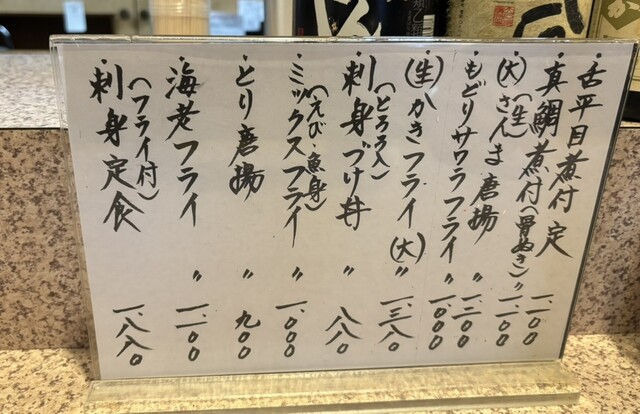 ・舌平目煮付定 一、一〇〇
真鯛煮付(骨ぬき)〃 一、二〇〇
・(大)(生)さんま唐揚 一、二〇〇
・もどりサワラフライ〃 一、〇〇〇
・(生)かきフライ(大)〃 一、三八〇
(とろろ入)
・刺身づけ丼〃 八八〇
(えび・魚身)
・ミックスフライ〃 一、〇〇〇
・とり唐揚〃 九〇〇
・海老フライ〃 一、一〇〇
(フライ付)
・刺身定食 一、八八〇